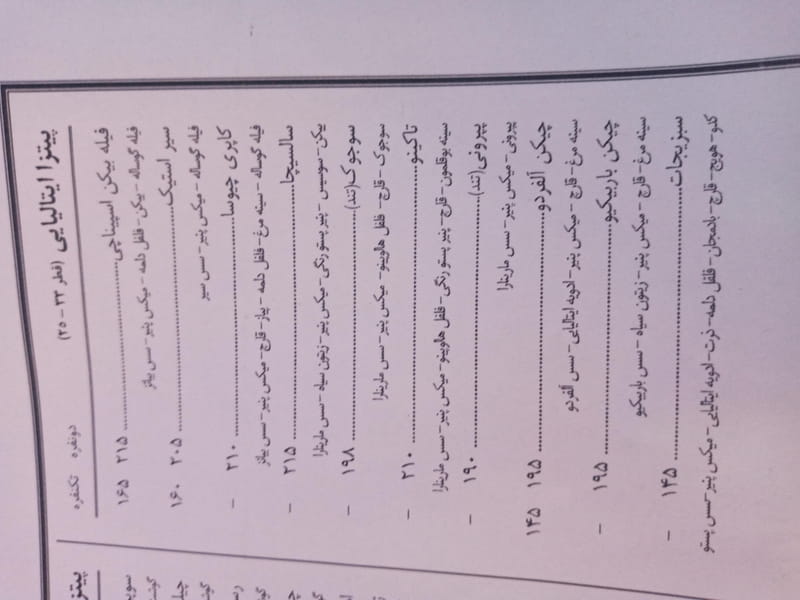 پیتزا ایتالیایی (قطر ۳۳ – ۲۵) دونفره تکنفره
فیله بیکن اسپیناچی ۲۱۵ ۱۶۵
فیله گوساله – بیکن – فلفل دلمه – میکس پنیر – سس بیانز
سیر استیک ۲۰۵ ۱۶۰
فیله گوساله – میکس پنیر – سس سیر
کاپری چیوسا ۲۱۰ –
فیله گوساله – سینه مرغ – فلفل دلمه – پیاز – قارچ – میکس پنیر – سس بیانز
سالسیچا ۲۱۵ –
بیکن – سوسیس – پنیر پستو رنگی – میکس پنیر – زیتون سیاه – سس مارینارا
سوجوک (تند) ۱۹۸ –
سوجوک – قارچ – فلفل هالوپینو – میکس پنیر – سس مارینارا
تاکینو ۲۱۰ –
سینه بوقلمون – قارچ – پنیر پستو رنگی – فلفل هالوپینو – میکس پنیر – سس مارینارا
پپرونی (تند) ۱۹۰ –
پپرونی – میکس پنیر – سس مارینارا
چیکن آلفردو ۱۹۵ ۱۴۵
سینه مرغ – قارچ – میکس پنیر – ادویه ایتالیایی – سس آلفردو
چیکن باربیکیو ۱۹۵ –
سینه مرغ – قارچ – میکس پنیر – زیتون سیاه – سس باربیکیو
سبزیجات ۱۴۵ –
کدو – هویج – قارچ – بادمجان – فلفل دلمه – ذرت – ادویه ایتالیایی – میکس پنیر – سس پستو